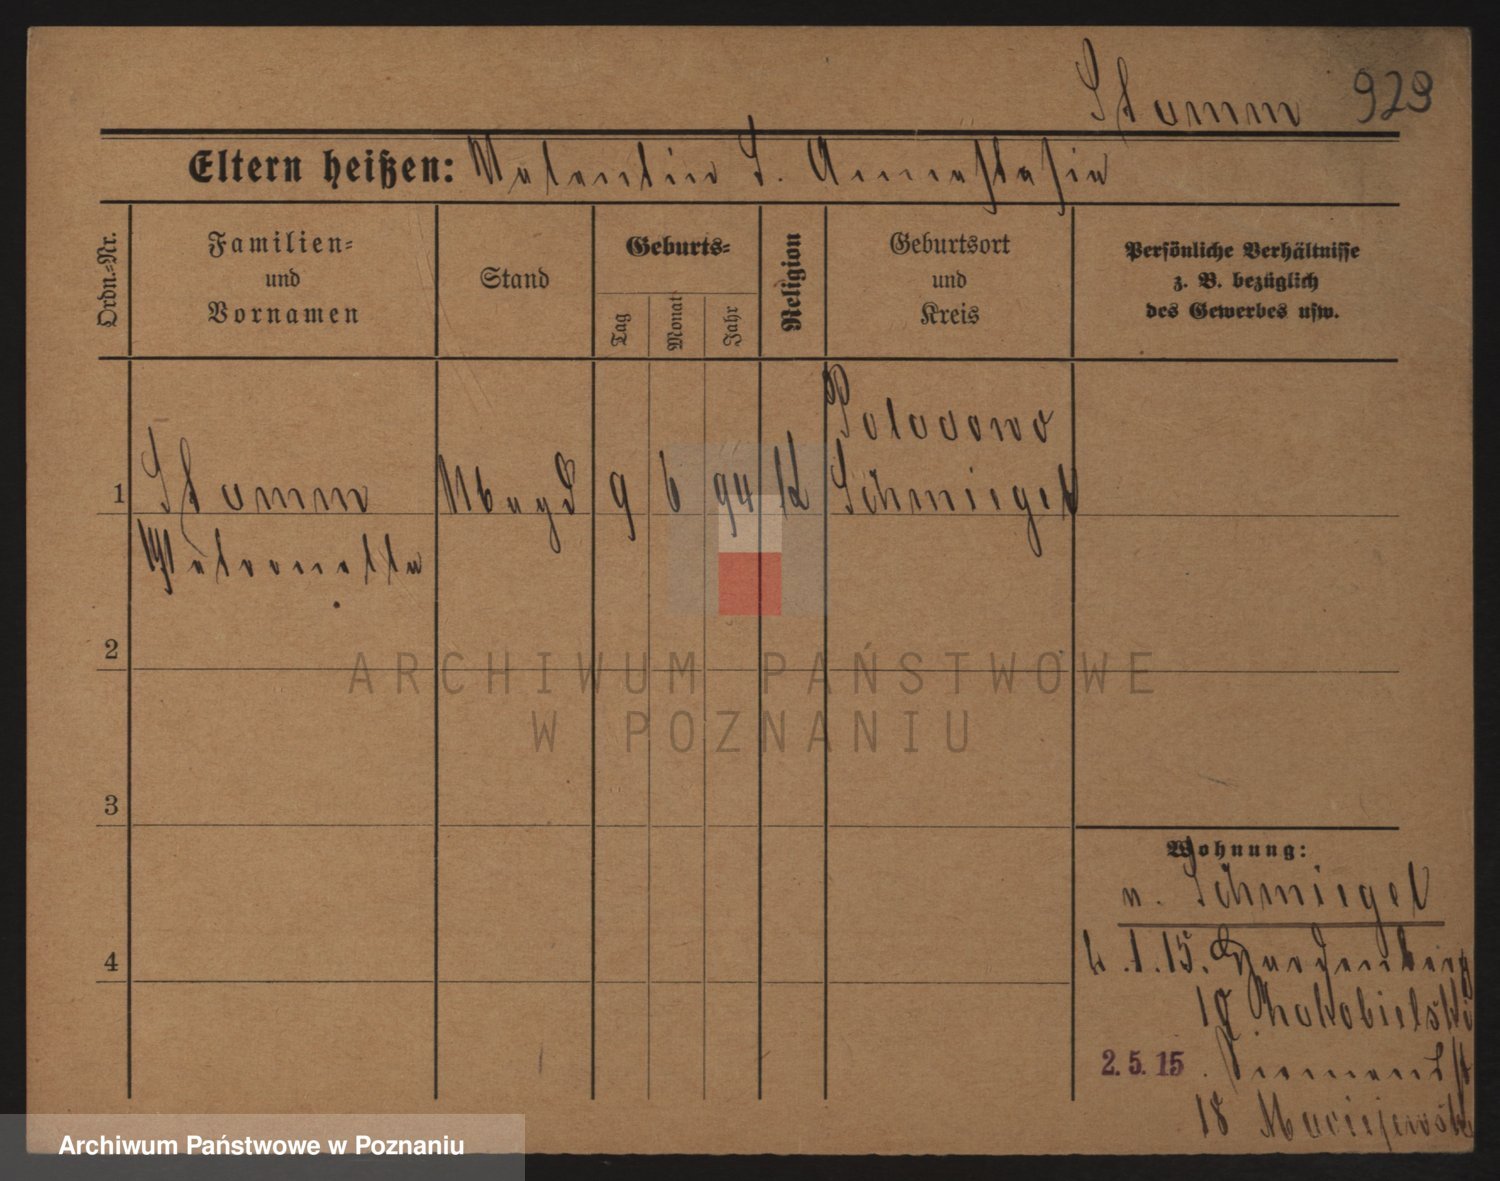 Stamm 929
Eltern heißen: Valentin S. Annastasia
Ordn.=Nr.
Familien=
und
Vornamen
Stand
Geburts=
Tag
Monat
Jahr
Religion
Geburtsort
und
Kreis
Persönliche Verhältnisse
z. B. bezüglich
des Gewerbes usw.
Poladowo
1 Stamm Magd 9 6 94 K Schmiegel
Petronella
2
3
4
ARCHIWUM PAŃSTWOWE
W POZNANIU
Wohnung:
n. Schmiegel
4.1.15. Hardenberg
10
2.5.15
18 Maciejewski
Archiwum Państwowe w Poznaniu